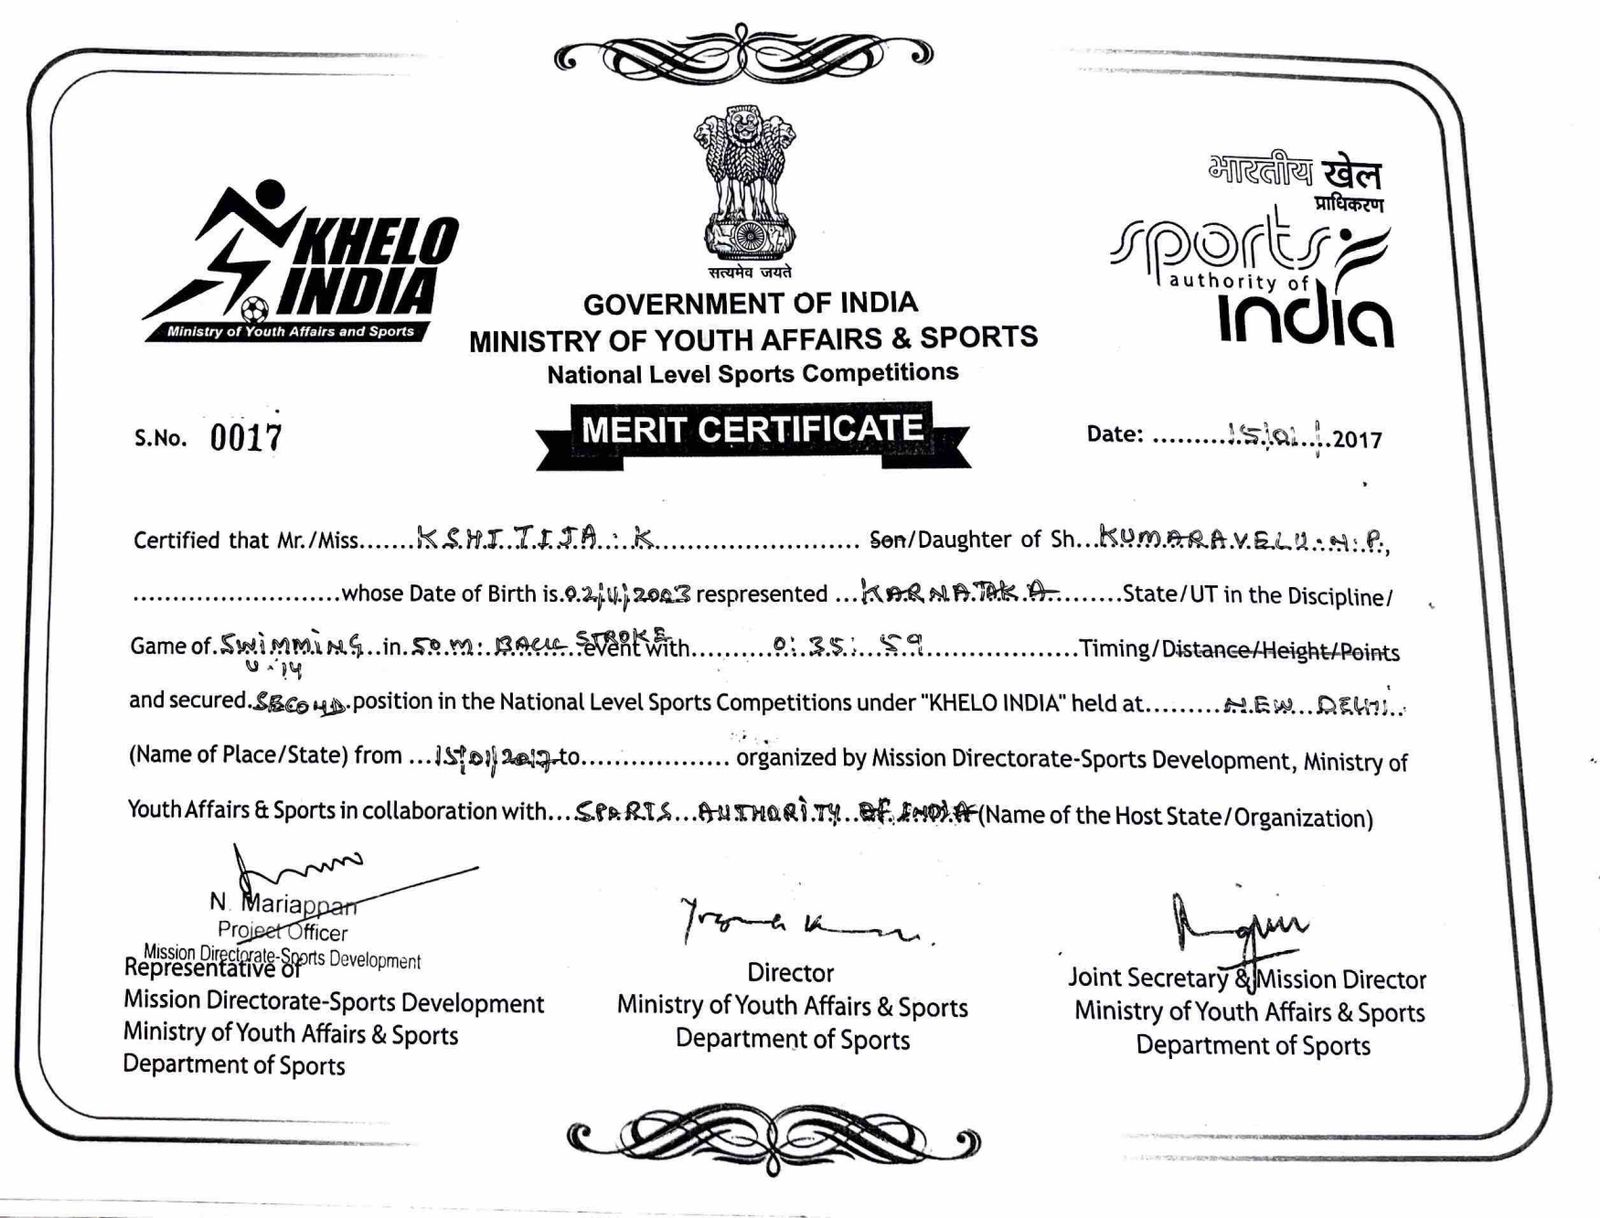 KHELO
INDIA
Ministry of Youth Affairs and Sports
सत्यमेव जयते
भारतीय खेल
प्राधिकरण
sports
authority of
india
GOVERNMENT OF INDIA
MINISTRY OF YOUTH AFFAIRS & SPORTS
National Level Sports Competitions
S.No. 0017
MERIT CERTIFICATE
Date: .........15/01/...2017
Certified that Mr./Miss.......KSHITIJA. K.......................... Son/Daughter of Sh...KUMARAVELU. N. P.,
..........................whose Date of Birth is.02/11/2003 respresented ...KARNATAKA.........State/UT in the Discipline/
Game of.SWIMMING..in.50 M. BACK STROKE event with..........0:35:59...................Timing/Distance/Height/Points
U-14
and secured.SECOND.position in the National Level Sports Competitions under "KHELO INDIA" held at.........NEW DELHI..
(Name of Place/State) from ...15/01/2017 to.................. organized by Mission Directorate-Sports Development, Ministry of
Youth Affairs & Sports in collaboration with...SPORTS AUTHORITY OF INDIA (Name of the Host State/Organization)
N. Mariappan
Project Officer
Mission Directorate-Sports Development
Representative of
Mission Directorate-Sports Development
Ministry of Youth Affairs & Sports
Department of Sports
Director
Ministry of Youth Affairs & Sports
Department of Sports
Joint Secretary & Mission Director
Ministry of Youth Affairs & Sports
Department of Sports